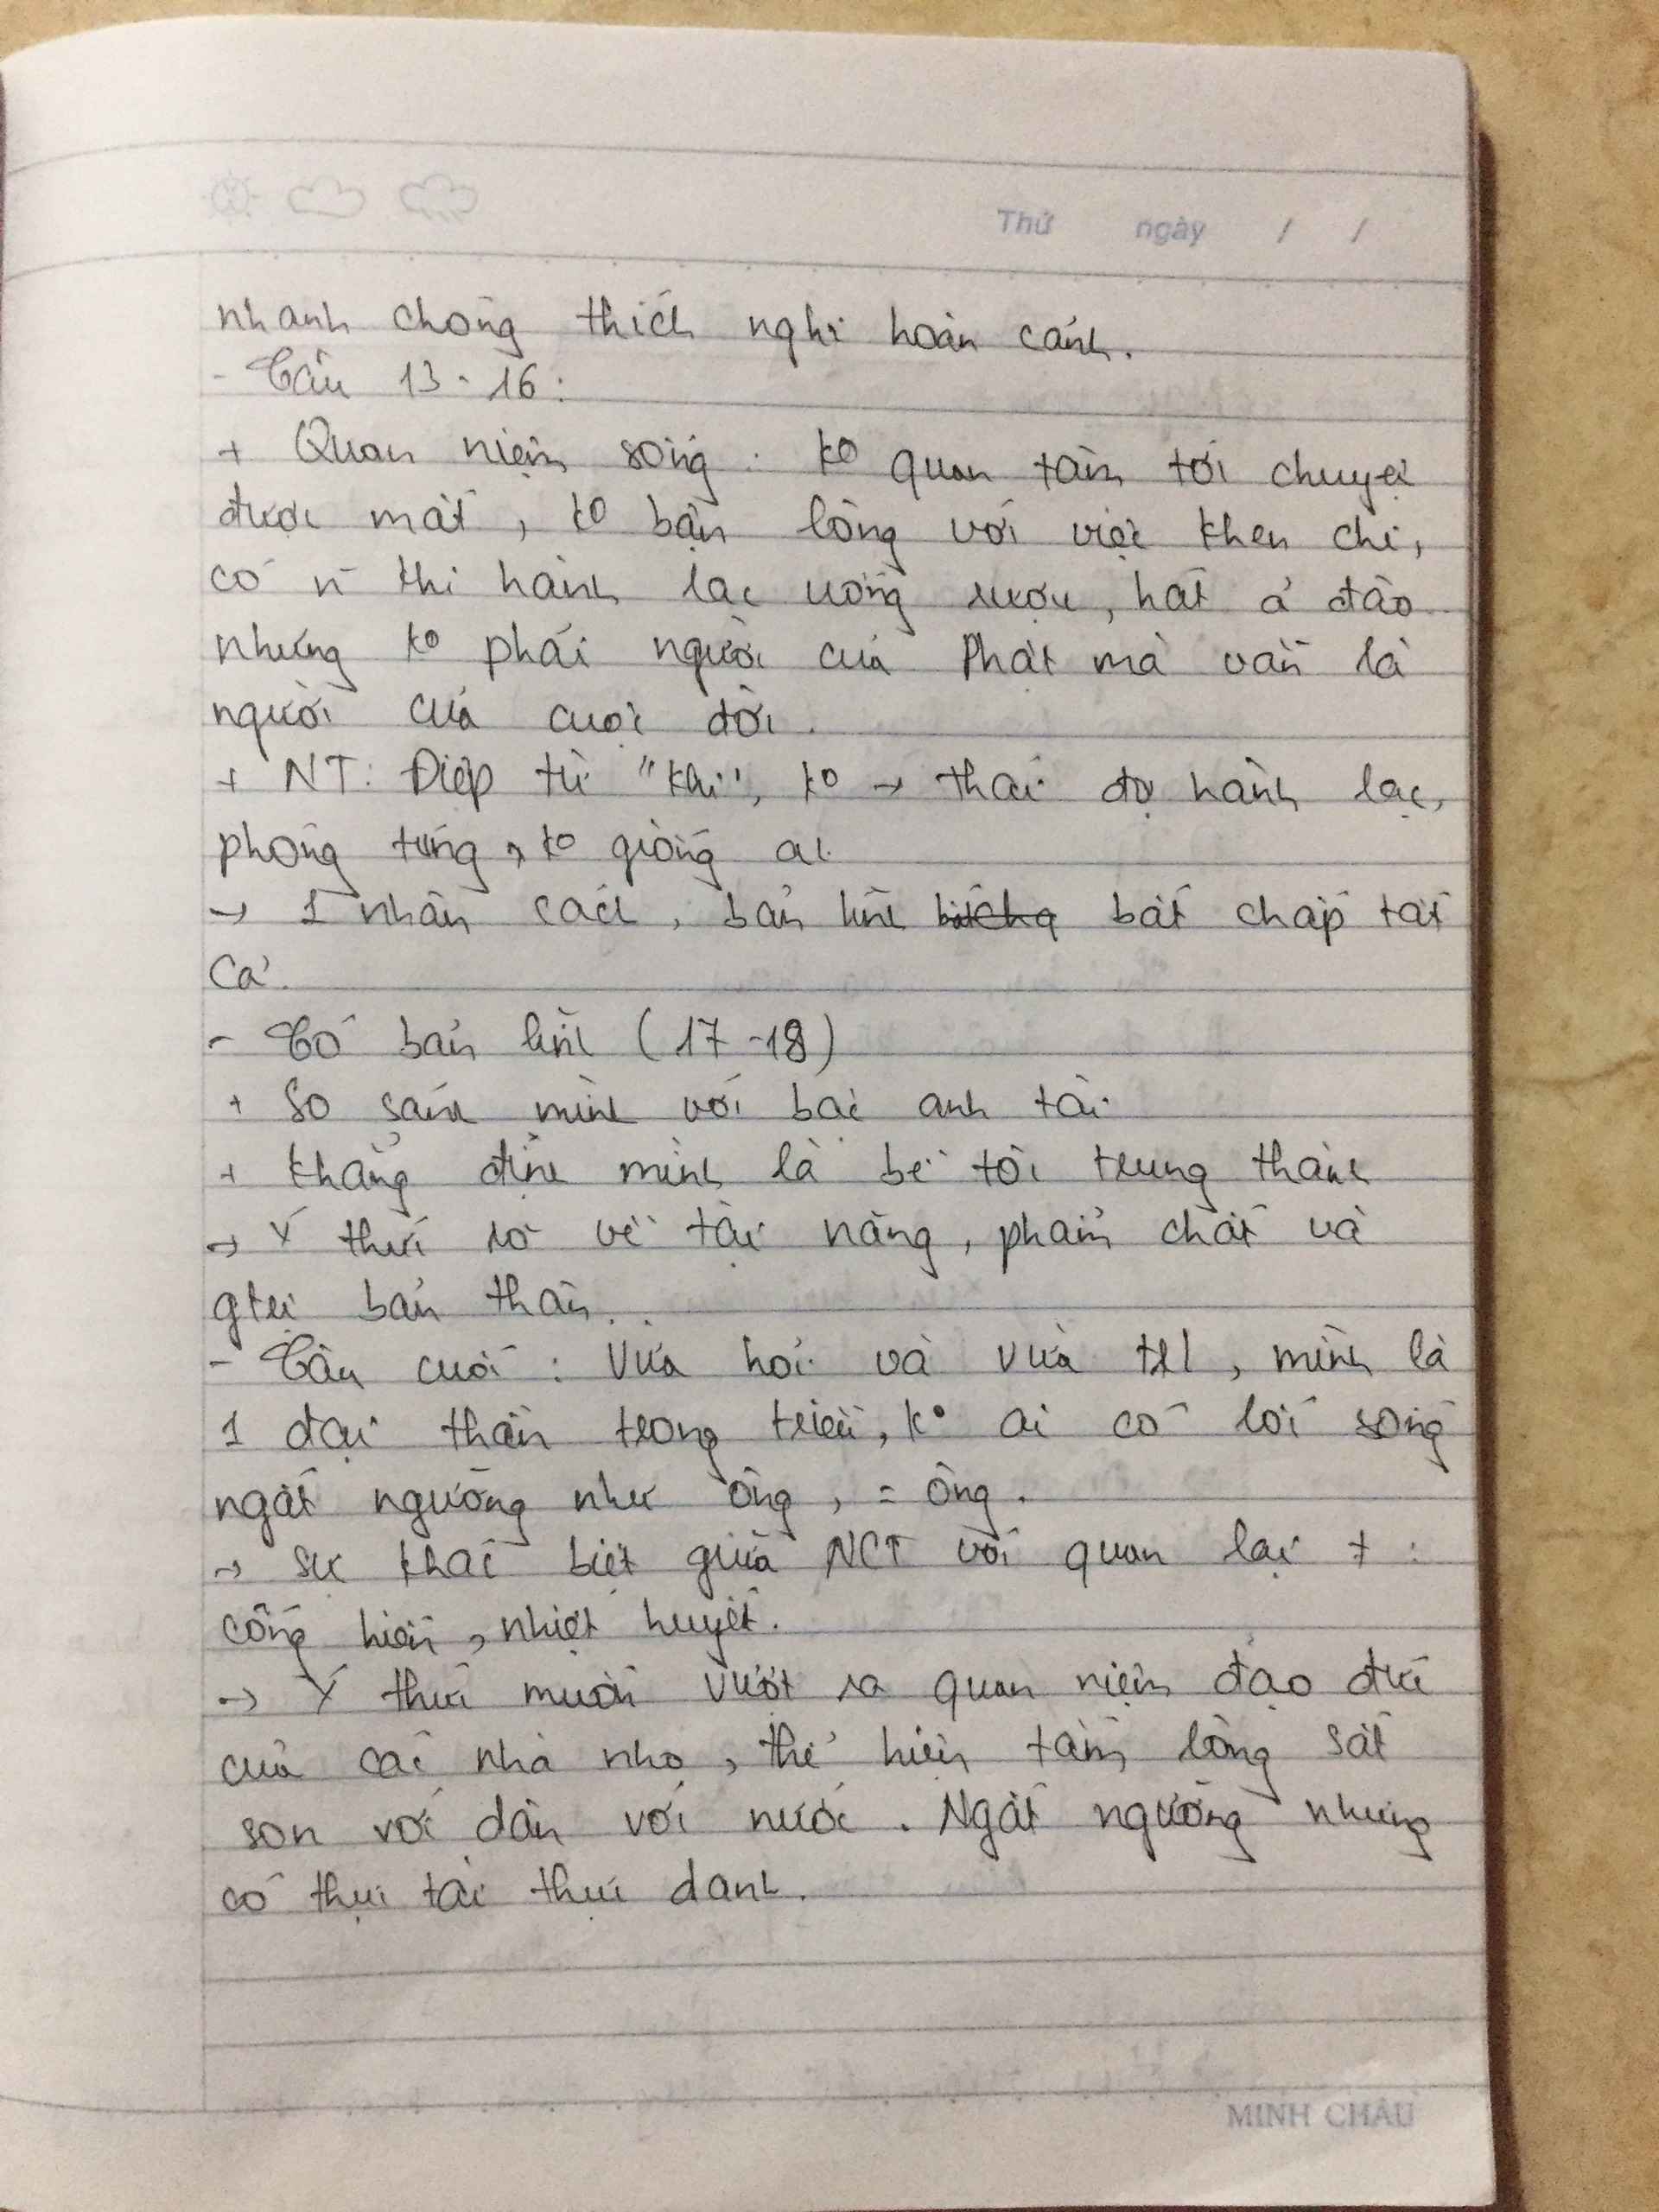 Thứ ngày / /
nhanh chóng thích nghi hoàn cảnh.
- Câu 13-16:
+ Quan niệm sống : ko quan tâm tới chuyện
được mất, ko bận lòng với việc khen chê,
có n~ khi hành lạc uống rượu, hát ả đào
nhưng ko phải người của Phật mà vẫn là
người của cuộc đời.
+ NT: Điệp từ "khi", ko → thái độ hành lạc,
phóng túng, ko giống ai.
→ 1 nhân cách, bản lĩnh bất chấp tất
cả.
- Có bản lĩnh (17-18)
+ So sánh mình với bậc anh tài
+ Khẳng định mình là bề tôi trung thành
→ Ý thức rõ về tài năng, phẩm chất và
gtrị bản thân.
- Câu cuối : Vừa hỏi và vừa trl, mình là
1 đại thần trong triều, ko ai có lối sống
ngất ngưởng như ông, = ông.
→ sự khác biệt giữa NCT với quan lại ≠ :
cống hiến, nhiệt huyết.
→ Ý thức muốn vượt ra quan niệm đạo đức
của các nhà nho, thể hiện tấm lòng sắt
son với dân với nước. Ngất ngưởng nhưng
có thực tài thực danh.
MINH CHÂU